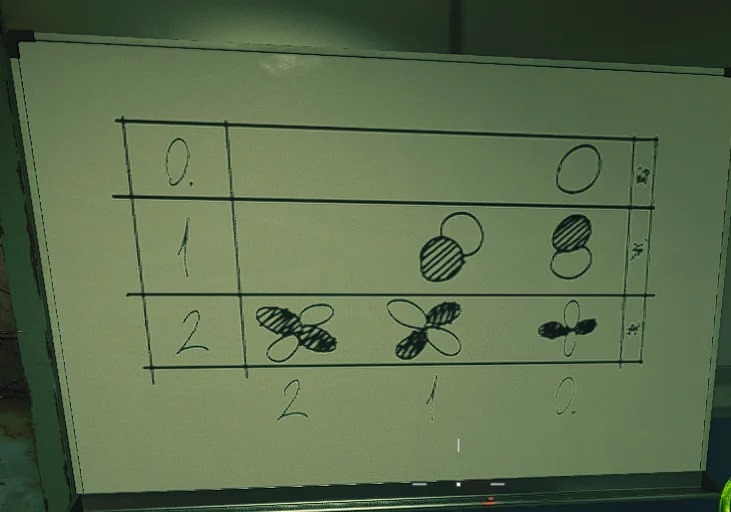 0.
1
2
2 1 0.